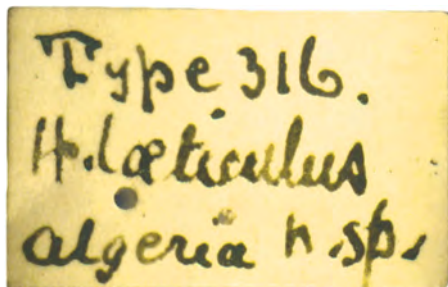 Type 316.
H. læticulus
algeria n.sp.